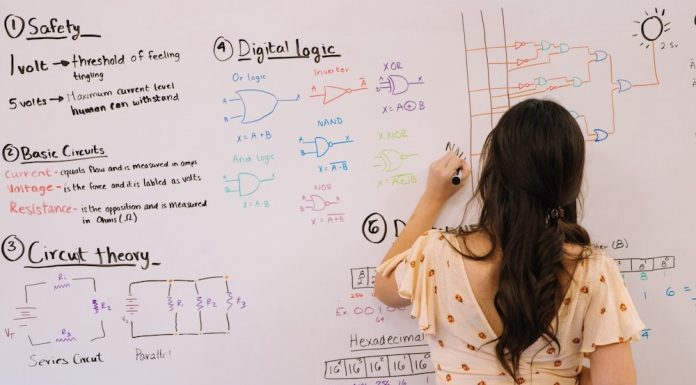 ① Safety
1 volt → threshold of feeling
tingling
5 volts → Maximum current level
human can withstand
② Basic Circuits
Current - equals flow and is measured in amps
Voltage - is the force and it is labled as volts
Resistance - is the opposition and is measured
in Ohms (Ω)
③ Circut theory
R₁
R₂
R₃
V_T
Series Circut
R₁ R₂ R₃
Parallel
④ Digital logic
Or logic
A
B
X
X = A + B
And logic
X = A·B
Inverter
A
A̅
NAND
A
B
X
X = \overline{A·B}
NOR
X = \overline{A+B}
XOR
A
B
X
X = A ⊕ B
XNOR
X = \overline{A ⊕ B}
2.5v
Ex.
Hexadecimal
16 16 16 16